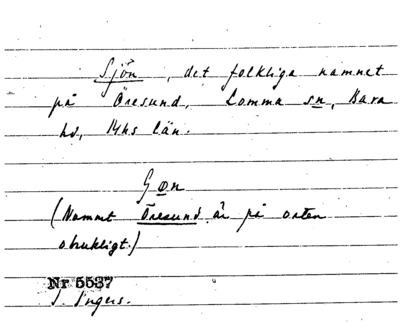 Sjön, det folkliga namnet
på Öresund, Lomma sn, Bara
hd, Mhs län.
Son
(Namnet Öresund är på orten
obrukligt.)
Nr 5537
I. Ingers.